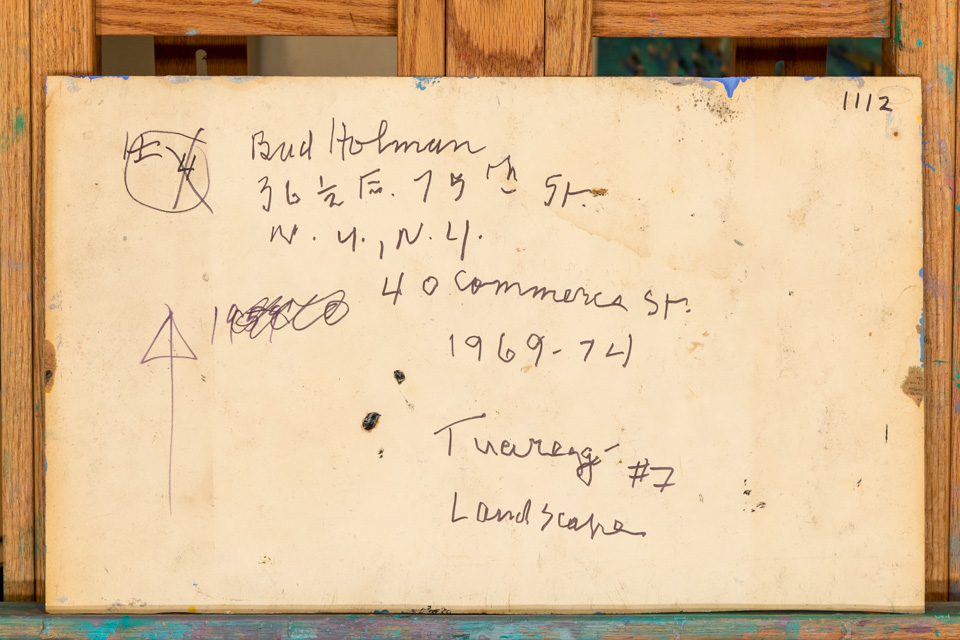 1112
Bud Holman
36 ½ E. 75th St.
N.Y., N.Y.
40 Commerce St.
1969-74
Tuareg #7
Landscape